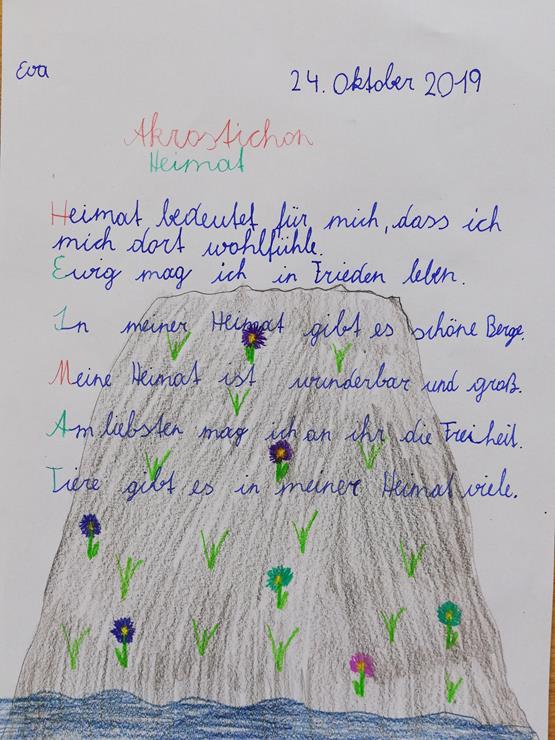 Eva
24. Oktober 2019
Akrostichon
Heimat
Heimat bedeutet für mich, dass ich
mich dort wohlfühle.
Ewig mag ich in Frieden leben.
In meiner Heimat gibt es schöne Berge.
Meine Heimat ist wunderbar und groß.
Am liebsten mag ich an ihr die Freiheit.
Tiere gibt es in meiner Heimat viele.